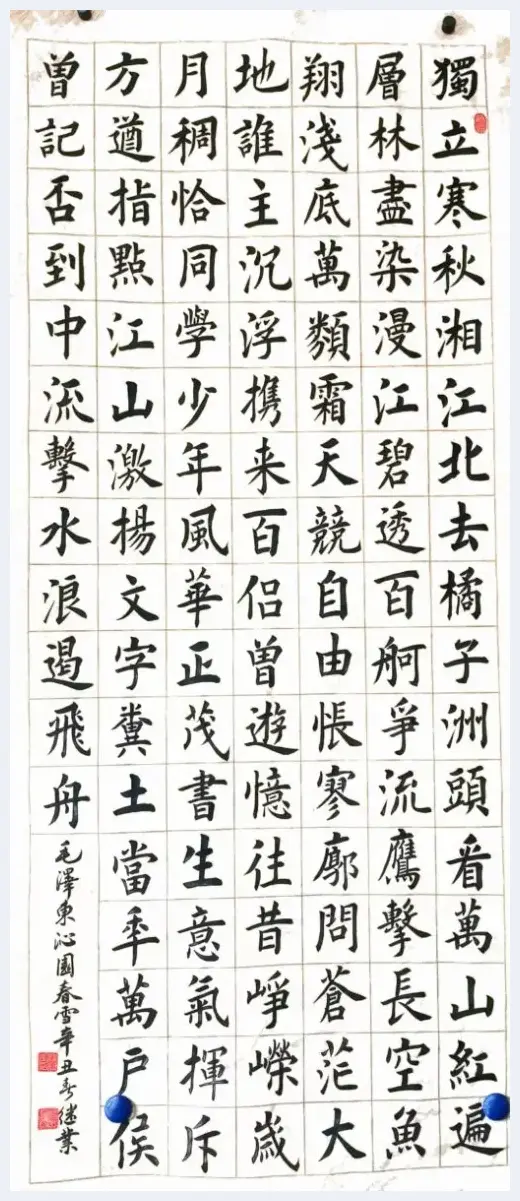 獨立寒秋湘江北去橘子洲頭看萬山紅遍
層林盡染漫江碧透百舸爭流鷹擊長空魚
翔淺底萬類霜天競自由悵寥廓問蒼茫大
地誰主沉浮携来百侣曾遊憶往昔崢嶸歲
月稠恰同學少年風華正茂書生意氣揮斥
方遒指點江山激揚文字糞土當年萬户侯
曾記否到中流擊水浪遏飛舟
毛澤東沁園春雪辛丑春继業